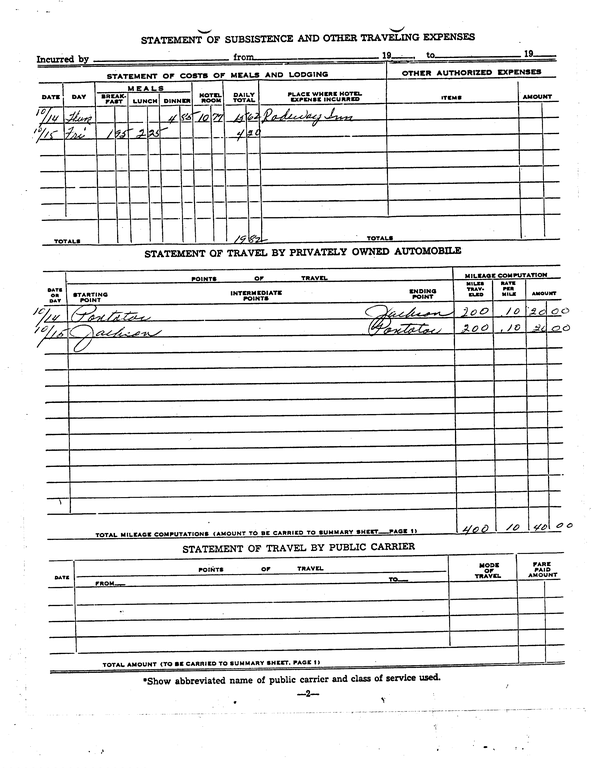 STATEMENT OF SUBSISTENCE AND OTHER TRAVELING EXPENSES
Incurred by from 19 to 19
STATEMENT OF COSTS OF MEALS AND LODGING OTHER AUTHORIZED EXPENSES
MEALS
DATE DAY BREAK-FAST LUNCH DINNER HOTEL ROOM DAILY TOTAL PLACE WHERE HOTEL EXPENSE INCURRED ITEMS AMOUNT
10/14 Thurs 4 85 10 77 15 62 Rodeway Inn
10/15 Fri 1 95 2 25 4 20
TOTALS 19 82 TOTALS
STATEMENT OF TRAVEL BY PRIVATELY OWNED AUTOMOBILE
POINTS OF TRAVEL MILEAGE COMPUTATION
DATE OR DAY STARTING POINT INTERMEDIATE POINTS ENDING POINT MILES TRAV-ELED RATE PER MILE AMOUNT
10/14 Pontotoc Jackson 200 .10 20 00
10/15 Jackson Pontotoc 200 .10 20 00
TOTAL MILEAGE COMPUTATIONS (AMOUNT TO BE CARRIED TO SUMMARY SHEET PAGE 1) 400 10 40 00
STATEMENT OF TRAVEL BY PUBLIC CARRIER
DATE POINTS OF TRAVEL MODE OF TRAVEL FARE PAID AMOUNT
FROM TO
TOTAL AMOUNT (TO BE CARRIED TO SUMMARY SHEET, PAGE 1)
*Show abbreviated name of public carrier and class of service used.
—2—